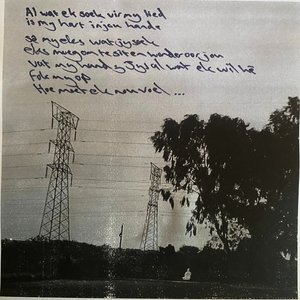 Al wat ek soek vir my lied
is my hart in jou hande
sê my eks wat jy soek
eks moeg om te sit en wonder oor jou
vat my hand jy's al wat ek wil hê
Fok my op
Hoe moet ek nou voel ...